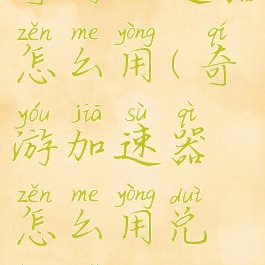 zěn me yòng qí
怎么用(奇
yóu jiā sù qì
游加速器
zěn me yòng duì
怎么用兑